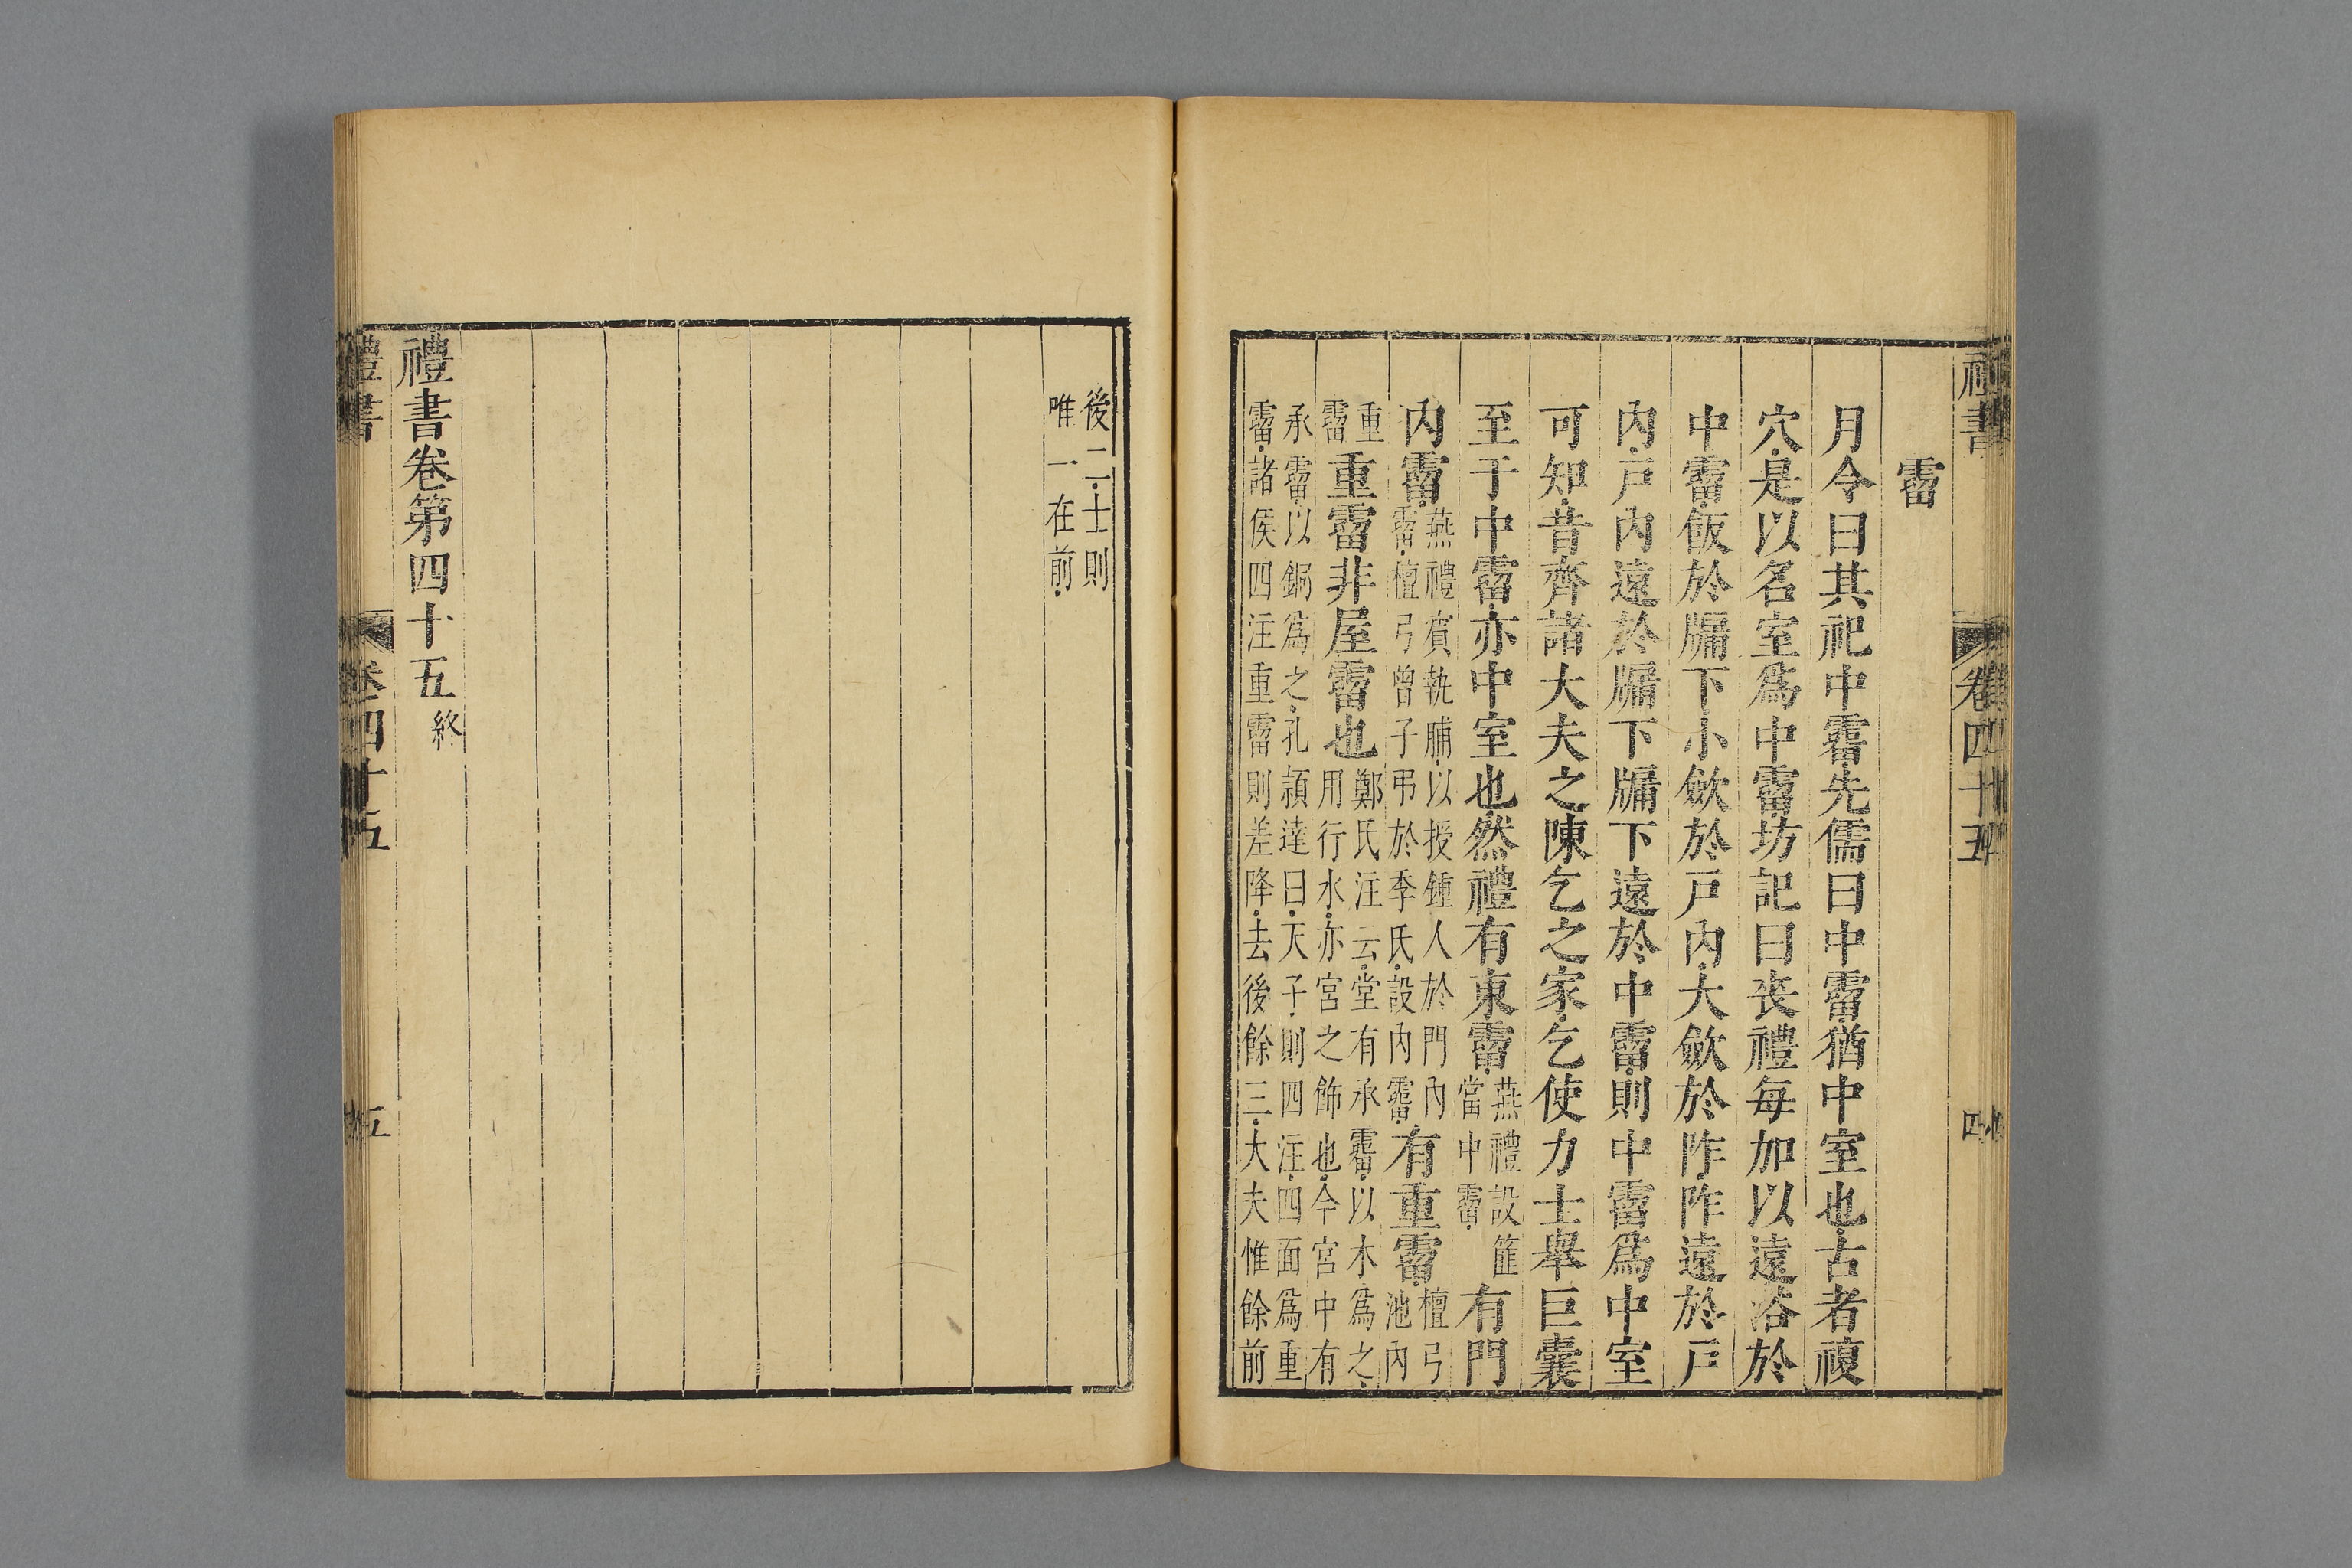 霤
月令曰其祀中霤先儒曰中霤猶中室也古者複
穴是以名室爲中霤坊記曰喪禮每加以遠浴於
中霤飯於牖下小斂於戶內大斂於阼阼遠於戶
內戶內遠於牖下牖下遠於中霤則中霤爲中室
可知昔齊諸大夫之陳乞之家乞使力士舉巨囊
至于中霤亦中室也然禮有東霤燕禮設篚當中霤有門
內霤燕禮賓執脯以授鍾人於門內霤檀弓曾子弔於季氏設內霤有重霤檀弓池內
重霤重霤非屋霤也鄭氏注云堂有承霤以木爲之用行水亦宮之飾也今宮中有
承霤以銅爲之孔頴達曰天子則四注四面爲重霤諸侯四注重霤則差降去後餘三大夫惟餘前
禮書
卷四十五
四
後二士則唯一在前
禮書卷第四十五終
禮書
卷四十五
五